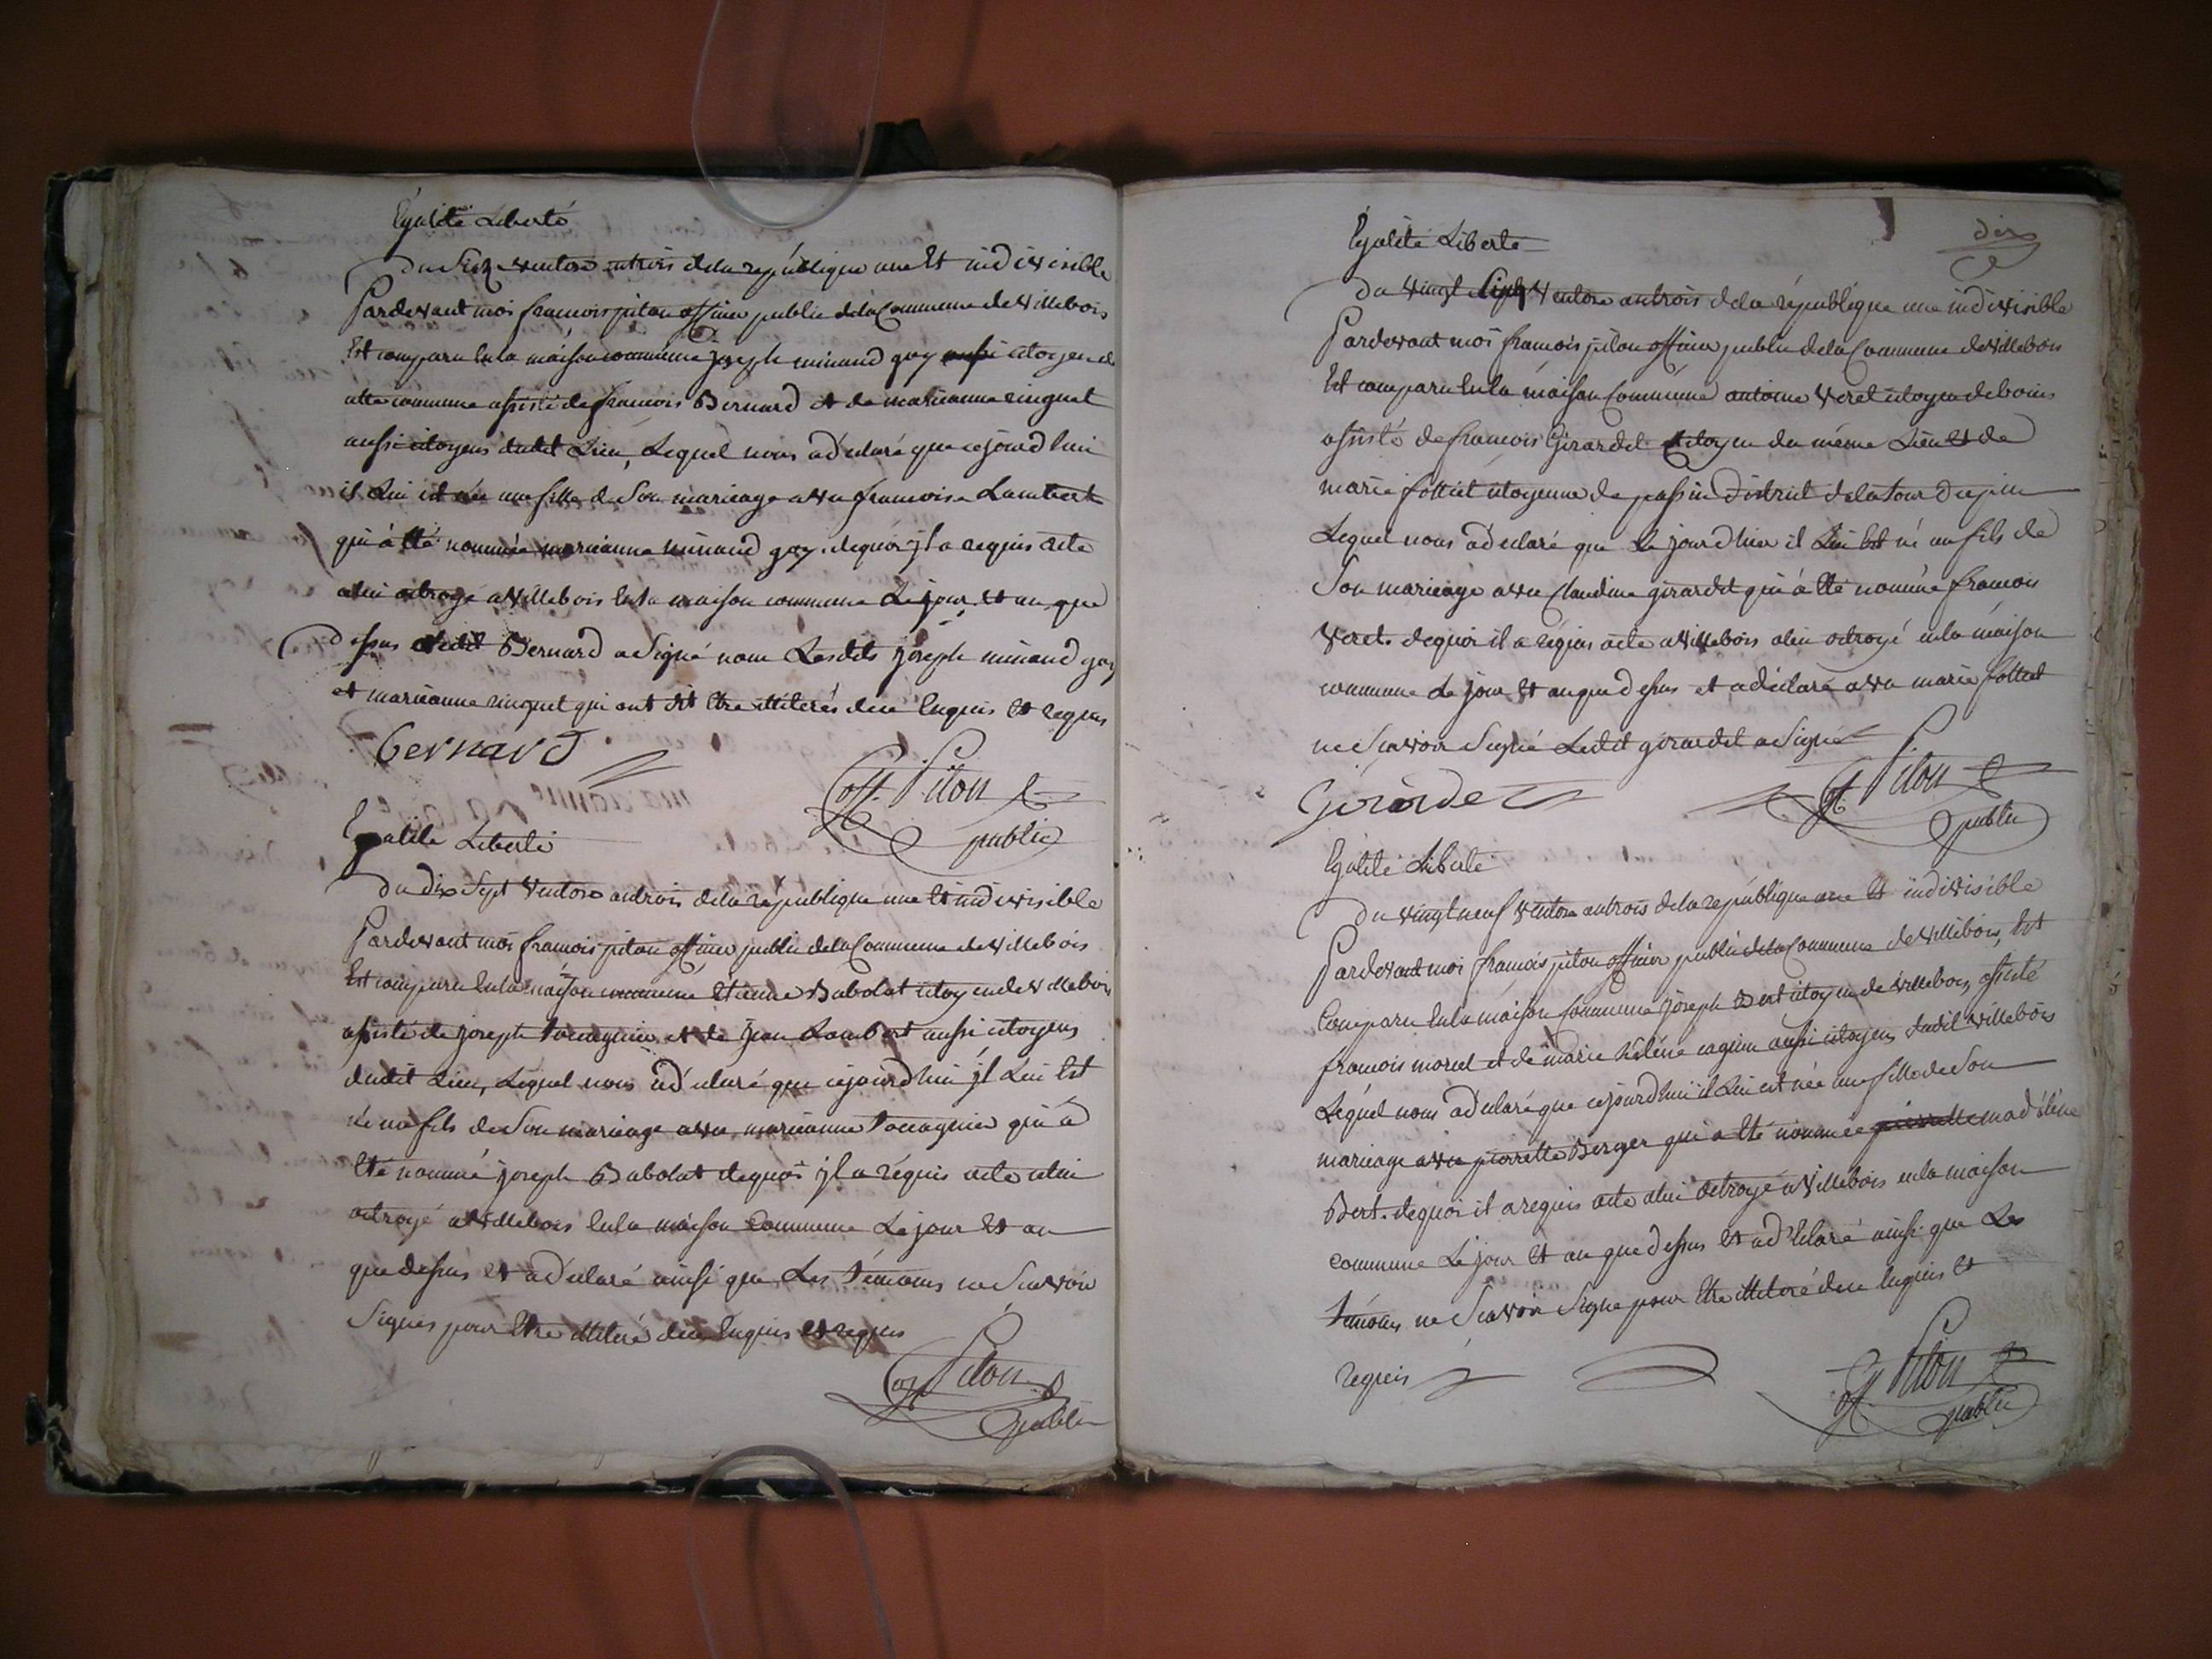 Egalité Liberté
du Seize ventose antrois dela republique une Et indivisible
Pardevant moi francois piton officier public dela Commune de villebois
Est comparu En la maison commune joseph minaud guy citoyen de
cette commune assisté de francois Bernard et de marieanne ringuet
aussi citoyens dudit Lieu, Lequel nous adéclaré que cejourdhui
il Lui est née une fille de Son marieage avec francoise Lambert
qui à été nommée marieanne minaud guy dequoi jl a requis acte
alui octroyé a Villebois En la maison commune Le jour et an que
dessus Ledit Bernard a Signé non Lesdits joseph minaud guy
et marieanne ringuet qui ont dit Etre illiterés dece Enquis Et requis
Bernard
off. Piton
public
Egalité Liberté
du dix Sept Ventose antrois dela republique une Et indivisible
Pardevant moi francois piton officier public dela Commune de villebois
Est comparu En la maison commune Etienne Babolat citoyen de villebois
assisté de joseph Tocagnier et de jean Lambert aussi citoyens
dudit Lieu, Lequel nous adéclaré que cejourdhui jl Lui Est
né un fils de Son marieage avec marieanne Tocagnier qui à
Eté nommé joseph Babolat dequoi jl a requis acte alui
octroyé a Villebois En la maison Commune Le jour Et an
que dessus et adéclaré ainsi que Les témoins ne Scavoir
Signer pour Etre illiteré dece Enquis et requis
off Piton
public
dix
Egalité Liberté
du vingt Sept Ventose antrois dela république une indivisible
Pardevant moi francois piton officier public dela Commune de villebois
Est comparu En la maison Commune antoine Veret citoyen de bouis
assisté de francois Girardet Citoyen du même Lieu et de
marie follict citoyenne de passin District de la tour dupin
Lequel nous adéclaré que Le jour dhier il Lui Est né un fils de
Son marieage avec Claudine girardet qui à été nommé francois
Veret. dequoi il a réquis acte a Villebois alui octroyé en la maison
commune Le jour Et an que dessus et adéclaré avec marie follict
ne Scavoir Signé Ledit girardet a Signé
Girardet
off Piton
public
Egalité Liberté
du vingt neuf Ventose antrois dela république une Et indivisible
Pardevant moi francois piton officier public dela Commune de villebois, Est
Comparu En la maison Commune joseph Bert citoyen de villebois, assisté
francois morel et de marie hélène cagnin aussi citoyens dudit villebois
Lequel nous adéclaré que cejourdhui il Lui est née une fille de Son
marieage avec pierrette Berger qui a Eté nommée pierrette madélène
Bert. dequoi il a requis acte alui octroyé a Villebois en la maison
commune Le jour Et an que dessus Et adéclaré ainsi que Les
témoins ne Scavoir Signe pour Etre illiteré dece Enquis Et
requis
off Piton
public